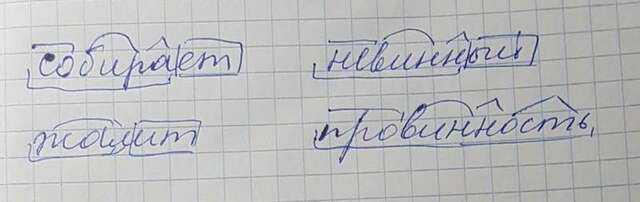 собирает невинный
жалит провинность